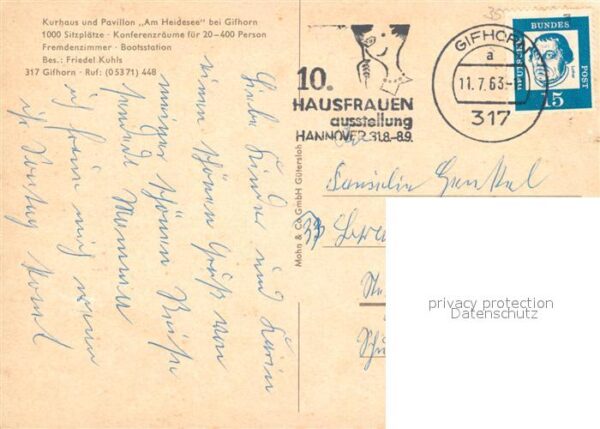 Kurhaus und Pavillon „Am Heidesee" bei Gifhorn
1000 Sitzplätze · Konferenzräume für 20–400 Person
Fremdenzimmer · Bootsstation
Bes.: Friedel Kuhls
317 Gifhorn · Ruf: (05371) 448
Liebe Kinder und Karin
einen schönen Gruß von
meiner schönen Reise
sendet Mummi
ich freue mich wenn
ihr Sonntag kommt
Mohn & Co GmbH Gütersloh
10.
HAUSFRAUEN
ausstellung
HANNOVER 31.8.–8.9.
GIFHORN
a
11.7.63
317
35
BUNDES
POST
15
Familie
33
privacy protection
Datenschutz